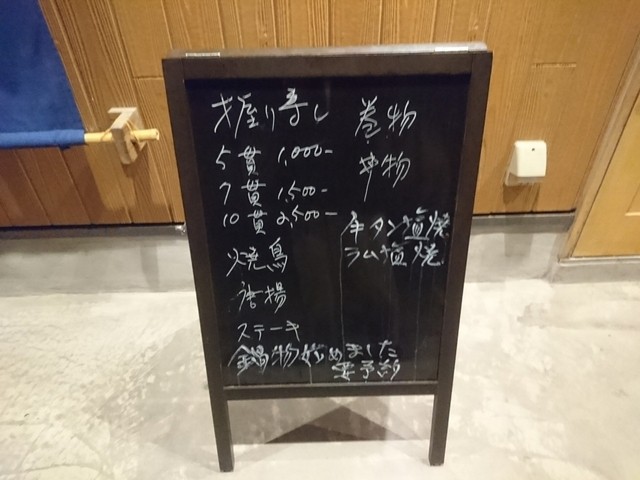 握り寿し
5貫 1,000-
7貫 1,500-
10貫 2,500-
焼鳥
唐揚
ステーキ
巻物
丼物
牛タン塩焼
ラム塩焼
鍋物始めました
要予約